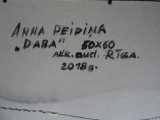 ANNA PEIDIŅA
„DABA" 50X60
AKR. AUD. RĪGA.
2018g.